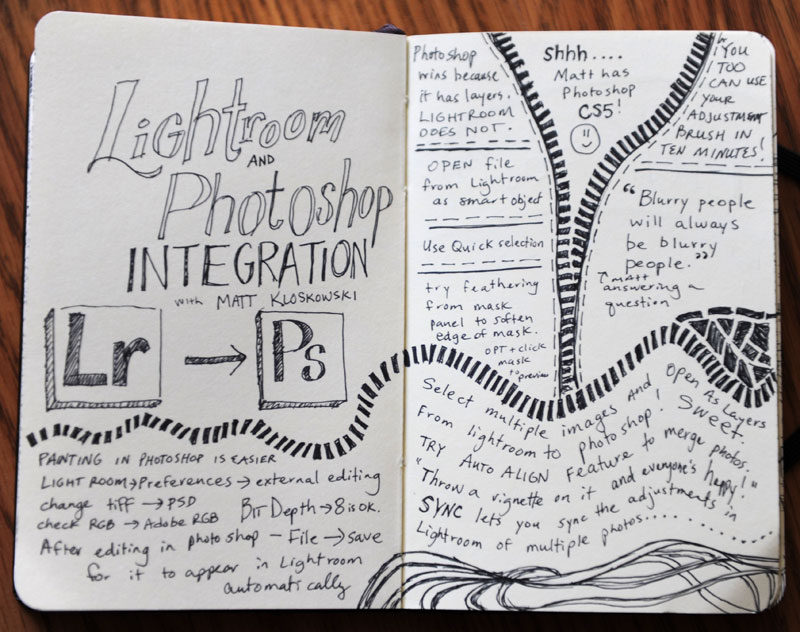 Lightroom
AND
Photoshop
INTEGRATION
with MATT KLOSKOWSKI
Lr → Ps
PAINTING IN PHOTOSHOP IS EASIER
LIGHTROOM → Preferences → external editing
change tiff → PSD
check RGB → Adobe RGB
BIT Depth → 8 is OK.
After editing in photoshop - File → save
for it to appear in Lightroom
automatically
Photoshop
wins because
it has layers.
LIGHTROOM
DOES NOT.
OPEN file
from Lightroom
as smart object
Use Quick selection
try feathering
from mask
panel to soften
edge of mask.
OPT + click
mask
to preview
Shhh....
Matt has
Photoshop
CS5!
YOU
TOO
CAN USE
YOUR
ADJUSTMENT
BRUSH IN
TEN MINUTES!
"Blurry people
will always
be blurry
people."
↑ MATT
answering a
question
Select multiple images and Open As Layers
From lightroom to photoshop! Sweet.
TRY AUTO ALIGN Feature to merge photos.
"Throw a vignette on it and everyone's happy!"
SYNC lets you sync the adjustments in
Lightroom of multiple photos..........